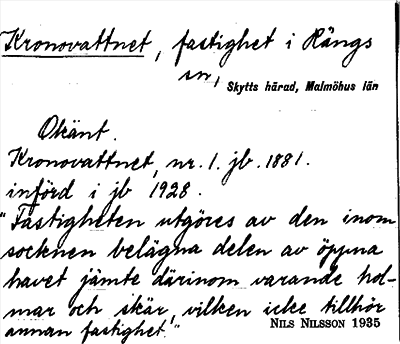 Kronovattnet, fastighet i Rängs
sn,
Skytts härad, Malmöhus län
Okänt.
Kronovattnet, nr. 1. jb. 1881.
införd i jb 1928.
"Fastigheten utgöres av den inom
socknen belägna delen av öppna
havet jämte därinom varande hol-
mar och skär, vilken icke tillhör
annan fastighet."
NILS NILSSON 1935